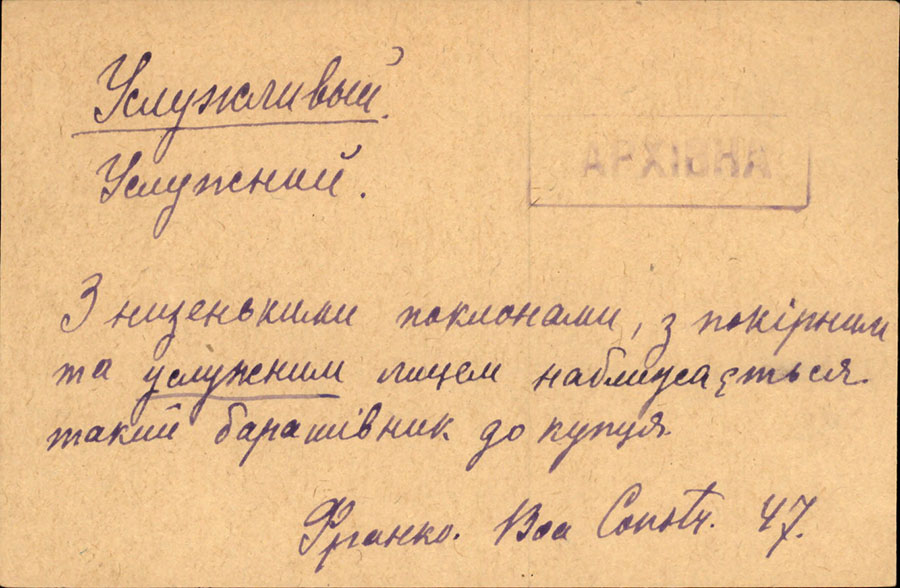 Услужливый.
Услужний.
АРХІВНА
З низенькими поклонами, з покірним
та услужним лицем наближається
такий барашівник до купця.
Франко. Boa Constr. 47.